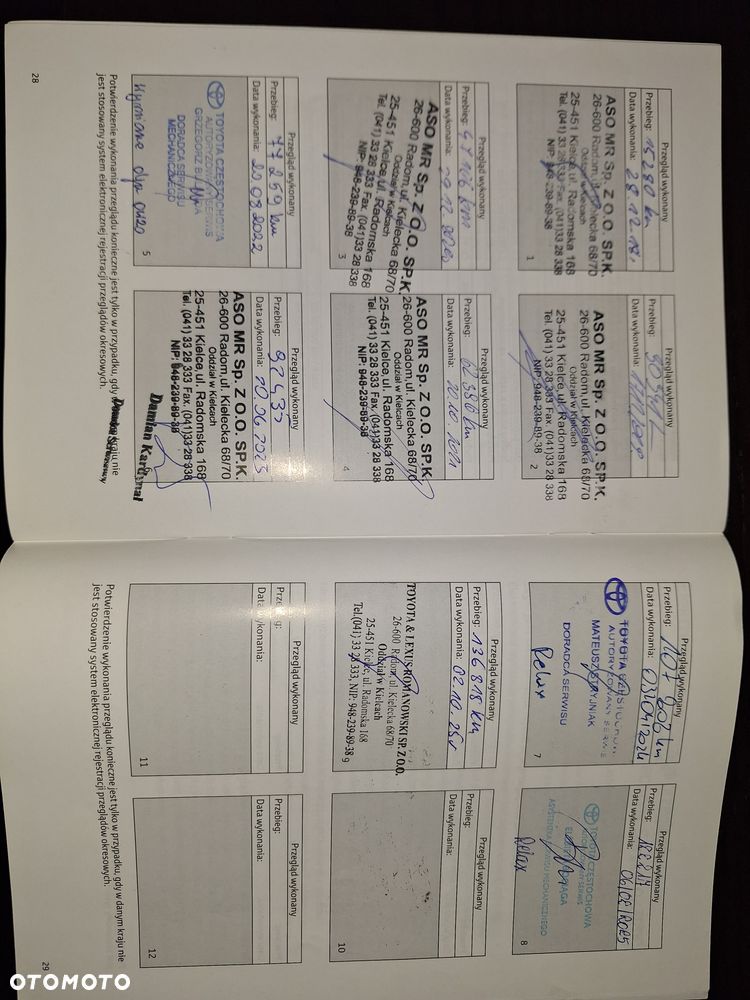 Przegląd wykonany
Przebieg: 15280 km
Data wykonania: 28.12.18r.
ASO MR Sp. Z O.O. SP.K.
26-600 Radom, ul. Kielecka 68/70
Oddział w Kielcach
25-451 Kielce, ul. Radomska 168
Tel. (041) 33 28 333 Fax. (041)33 28 338
NIP: 948-239-89-38
1
Przegląd wykonany
Przebieg:
Data wykonania:
ASO MR Sp. Z O.O. SP.K.
26-600 Radom, ul. Kielecka 68/70
Oddział w Kielcach
25-451 Kielce, ul. Radomska 168
Tel. (041) 33 28 333 Fax. (041)33 28 338
NIP: 948-239-89-38
2
Przegląd wykonany
Przebieg: 47166 km
Data wykonania: 29.12.2020
ASO MR Sp. Z O.O. SP.K.
26-600 Radom, ul. Kielecka 68/70
Oddział w Kielcach
25-451 Kielce, ul. Radomska 168
Tel. (041) 33 28 333 Fax. (041)33 28 338
NIP: 948-239-89-38
3
Przegląd wykonany
Przebieg: 62386 km
Data wykonania: 20.10.2021
ASO MR Sp. Z O.O. SP.K.
26-600 Radom, ul. Kielecka 68/70
Oddział w Kielcach
25-451 Kielce, ul. Radomska 168
Tel. (041) 33 28 333 Fax. (041)33 28 338
NIP: 948-239-89-38
4
Przegląd wykonany
Przebieg: 77259 km
Data wykonania: 20.09.2022
TOYOTA CZĘSTOCHOWA
AUTORYZOWANY SERWIS
GRZEGORZ
DORADCA SERWISU
MECHANICZNEGO
5
Przegląd wykonany
Przebieg: 92435
Data wykonania: 20.06.2023
ASO MR Sp. Z O.O. SP.K.
26-600 Radom, ul. Kielecka 68/70
Oddział w Kielcach
25-451 Kielce, ul. Radomska 168
Tel. (041) 33 28 333 Fax. (041)33 28 338
NIP: 948-239-89-38
Damian Kardynał
Doradca Serwisowy
Potwierdzenie wykonania przeglądu konieczne jest tylko w przypadku, gdy w kraju nie
jest stosowany system elektronicznej rejestracji przeglądów okresowych.
28
Przegląd wykonany
Przebieg: 107 603 km
Data wykonania: 03/04/2024
TOYOTA CZĘSTOCHOWA
AUTORYZOWANY SERWIS
MATEUSZ STRYJNIAK
DORADCA SERWISU
Relax
7
Przegląd wykonany
Przebieg: 122217
Data wykonania: 06/02/2025
TOYOTA CZĘSTOCHOWA
Relax
8
Przegląd wykonany
Przebieg: 136 818 km
Data wykonania: 02.10.25r
TOYOTA & LEXUS ROMANOWSKI SP. Z O.O.
26-600 Radom, ul. Kielecka 68/70
Oddział w Kielcach
25-451 Kielce, ul. Radomska 168
Tel.(041) 33 28 333, NIP: 948-239-89-38
9
Przegląd wykonany
Przebieg:
Data wykonania:
10
Przegląd wykonany
Przebieg:
Data wykonania:
11
Przegląd wykonany
Przebieg:
Data wykonania:
12
Potwierdzenie wykonania przeglądu konieczne jest tylko w przypadku, gdy w danym kraju nie
jest stosowany system elektronicznej rejestracji przeglądów okresowych.
29
OTOMOTO